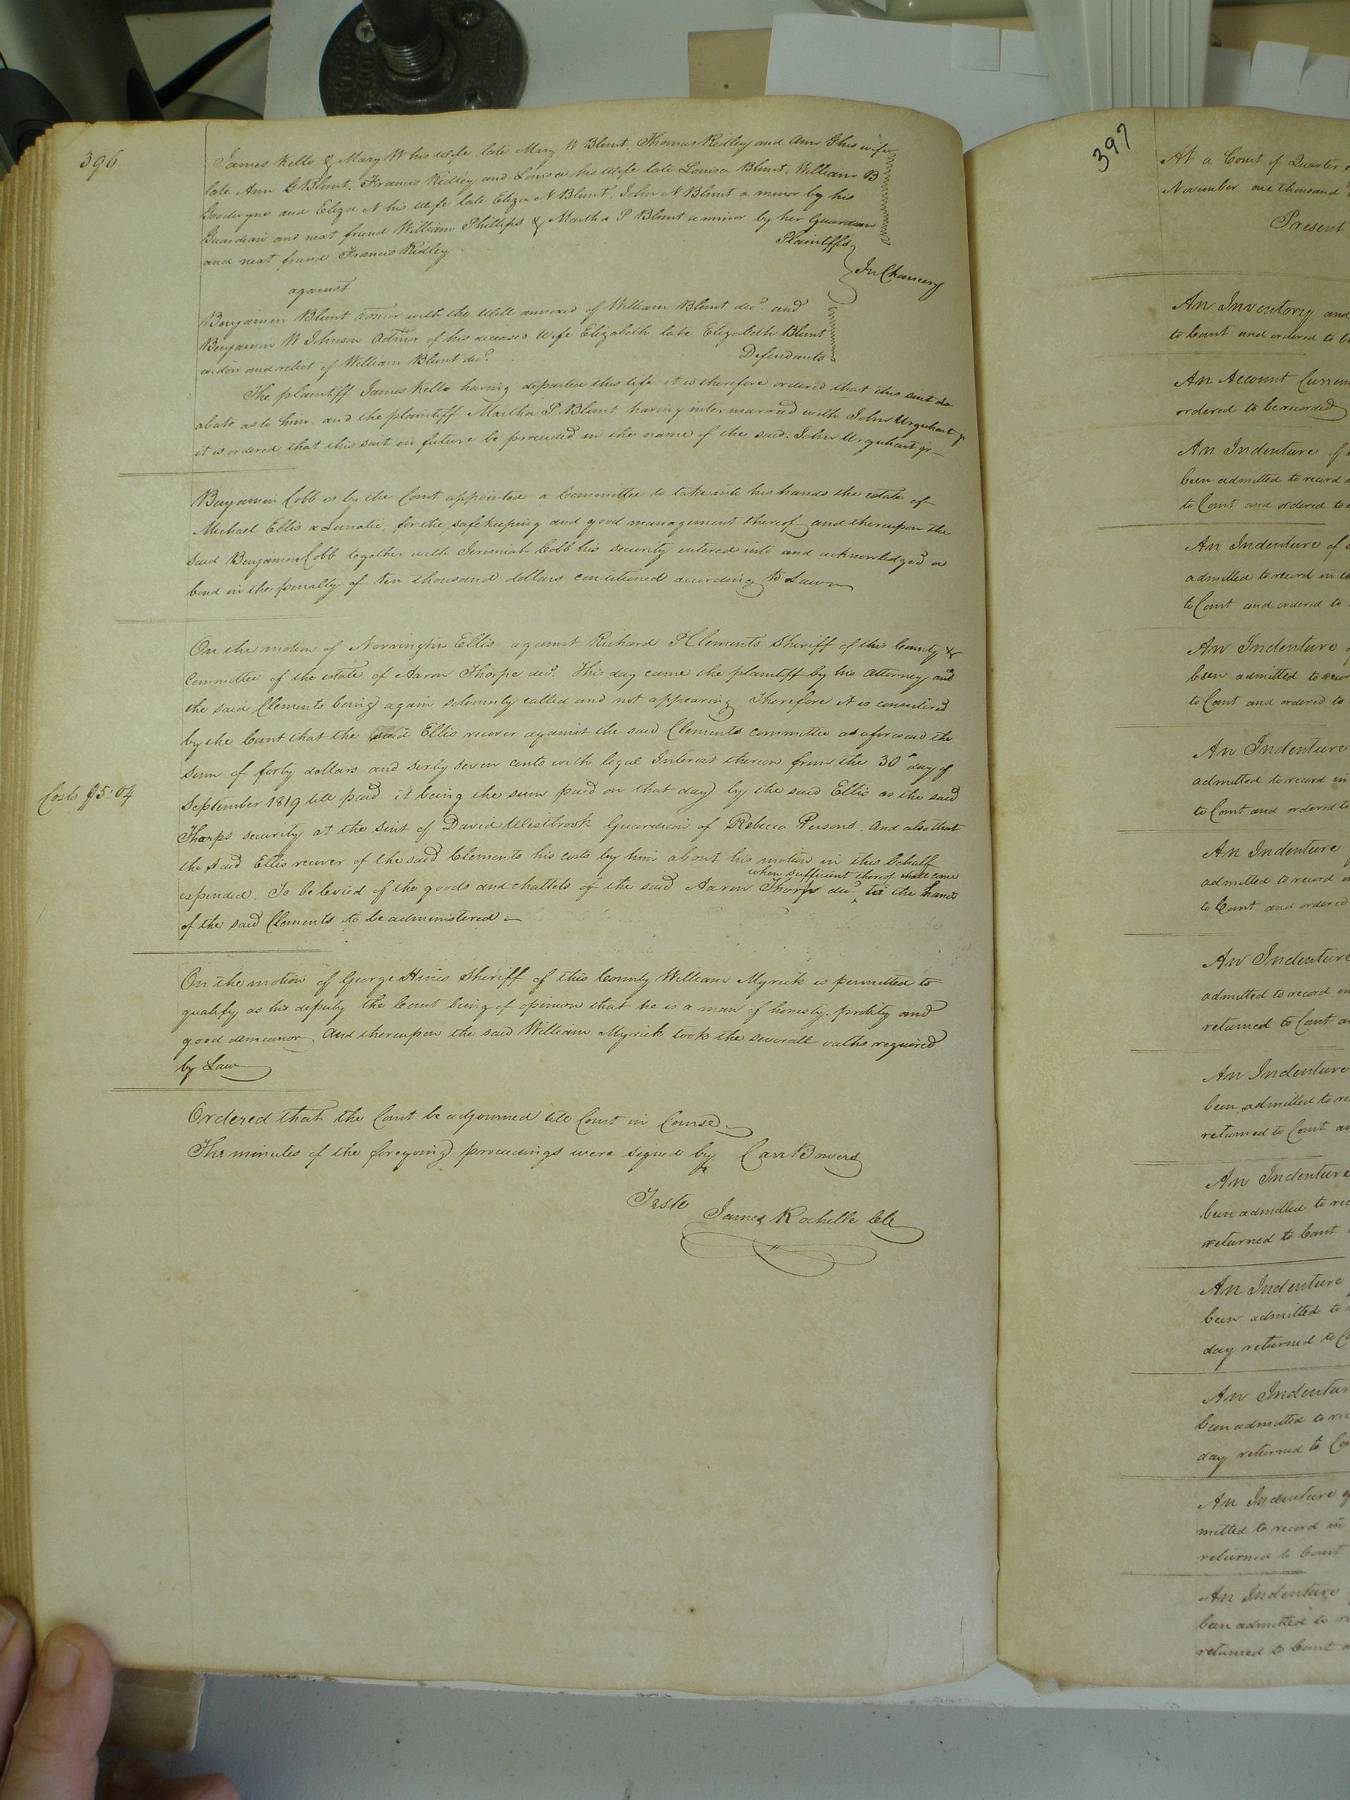 396
James Kello & Mary W his wife late Mary W Blunt, Thomas Ridley and Ann G his wife
late Ann G Blunt, Francis Ridley and Louisa his wife late Louisa Blunt, William B
Goodwyn and Eliza N his wife late Eliza N Blunt, John N Blunt a minor by his
Guardian and next friend William Phillips & Martha P Blunt a minor by her Guardian
and next friend Francis Ridley
Plaintiffs
In Chancery
against
Benjamin Blunt admor with the Will annexed of William Blunt decd and
Benjamin W Johnson admor of his deceased wife Elizabeth late Elizabeth Blunt
widow and relict of William Blunt decd
Defendants
The plaintiff James Kello having departed this life it is therefore ordered that this suit do
abate as to him. and the plaintiff Martha P Blunt having intermarried with John Urquhart jr
it is ordered that this suit in future be proceeded in the name of the said John Urquhart jr
Benjamin Cobb is by the Court appointed a Committee to take into his hands the estate of
Michael Ellis a Lunatic, for the safekeeping and good management thereof and thereupon the
said Benjamin Cobb together with Jeremiah Cobb his security entered into and acknowledged a
bond in the penalty of ten thousand dollars conditioned according to Law
On the motion of Norrington Ellis against Richard P Clements Sheriff of this County &
Committee of the estate of Aaron Thorpe decd. This day came the plaintiff by his attorney and
the said Clements being again solemnly called and not appearing Therefore it is considered
by the Court that the said Ellis recover against the said Clements committee as aforesaid the
Sum of forty dollars and sixty seven cents with legal Interest thereon from the 30th day of
September 1819 till paid it being the sum paid on that day by the said Ellis as the said
Costs $5.04
Thorps security at the Suit of David Westbrook Guardian of Rebecca Persons. And also that
the said Ellis recover of the said Clements his costs by him about his motion in this behalf
when sufficient thereof shall come
expended. To be levied of the goods and chattels of the said Aaron Thorps decd to the hands
of the said Clements to be administered
On the motion of George Hines Sheriff of this County William Myrick is permitted to
qualify as his deputy the Court being of opinion that he is a man of honesty, probity and
good demeanor, And thereupon the said William Myrick took the severall oaths required
by Law
Ordered that the Court be adjourned till Court in Course
The minutes of the foregoing proceedings were signed by Carr Bowers
Teste
James Rochelle Clk
397
At a Court of Quarter
November one thousand
Present
An Inventory and
to Court and ordered to be
An Account Current
ordered to be recorded
An Indenture of
been admitted to record
to Court and ordered to
An Indenture of
admitted to record in
to Court and ordered to
An Indenture
been admitted to record
to Court and ordered to
An Indenture
admitted to record in
to Court and ordered to
An Indenture
admitted to record in
to Court and ordered
An Indenture
admitted to record in
returned to Court
An Indenture
been admitted to
returned to Court
An Indenture
been admitted to
returned to Court
An Indenture
been admitted to
day returned to
An Indenture
been admitted to
day returned to
An Indenture
mitted to record in
returned to Court
An Indenture
been admitted to
returned to Court